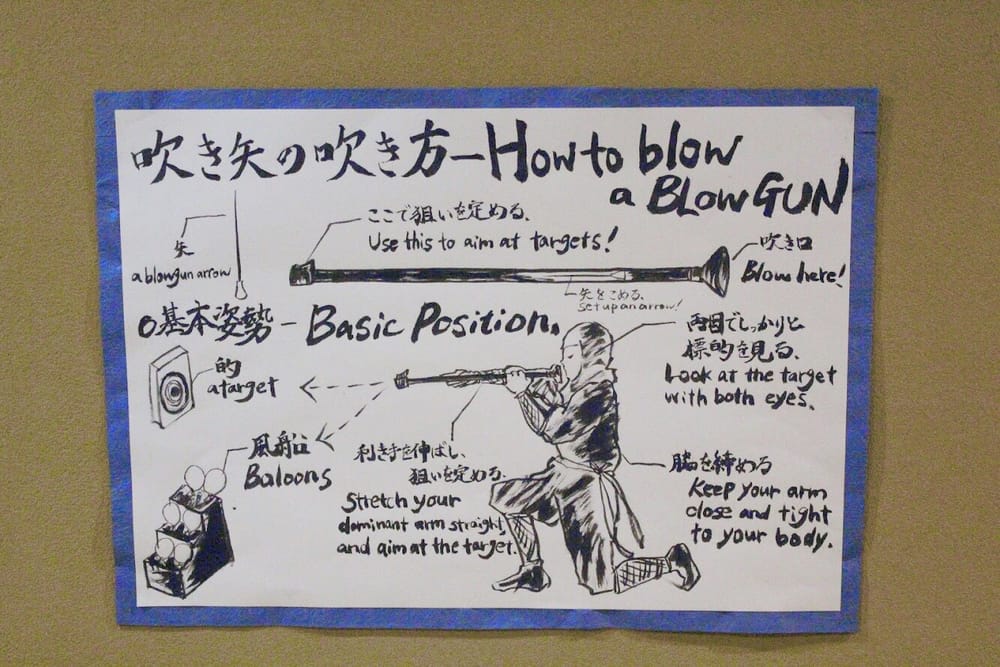 吹き矢の吹き方－How to blow
a BLOW GUN
矢
a blowgun arrow
ここで狙いを定める、
Use this to aim at targets!
吹き口
Blow here!
矢をこめる、
set up an arrow!
○基本姿勢－Basic Position.
的
a target
風船
Baloons
利き手を伸ばし、
狙いを定める、
Stretch your
dominant arm straight,
and aim at the target.
両目でしっかりと
標的を見る、
Look at the target
with both eyes.
脇を締める
Keep your arm
close and tight
to your body.